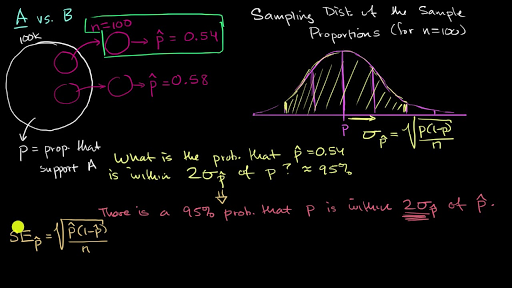 A vs. B
100k
n=100
p̂ = 0.54
p̂ = 0.58
p = prop. that
support A
Sampling Dist of the Sample
Proportions (for n=100)
p
σp̂ = √p(1-p)/n
What is the prob. that p̂ = 0.54
is within 2σp̂ of p? ≈ 95%
There is a 95% prob. that p is within 2σp̂ of p̂.
SEp̂ = √p̂(1-p̂)/n